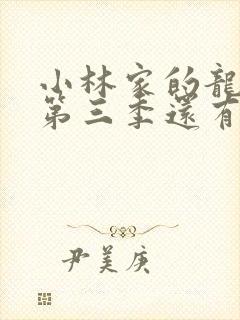 小林家的龍
第三季還有
尹美庚